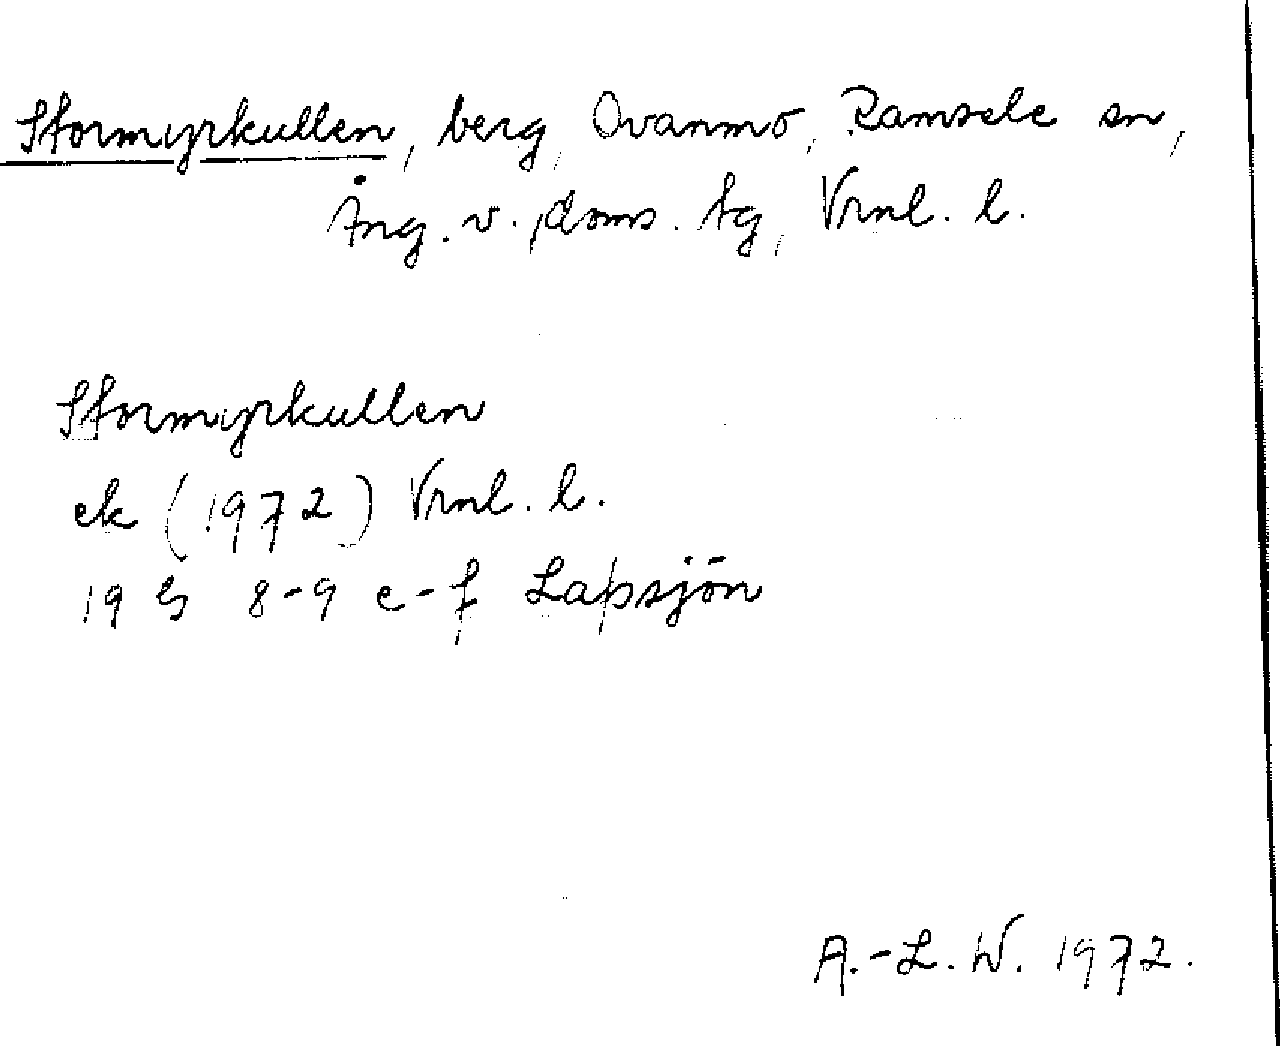 Stormyrkullen, berg, Ovanmo, Ramsele sn,
Ång. v. doms. tg, Vrnl. l.
Stormyrkullen
ek (1972) Vrnl. l.
19 G 8-9 e-f Lapsjön
A.-L. W. 1972.